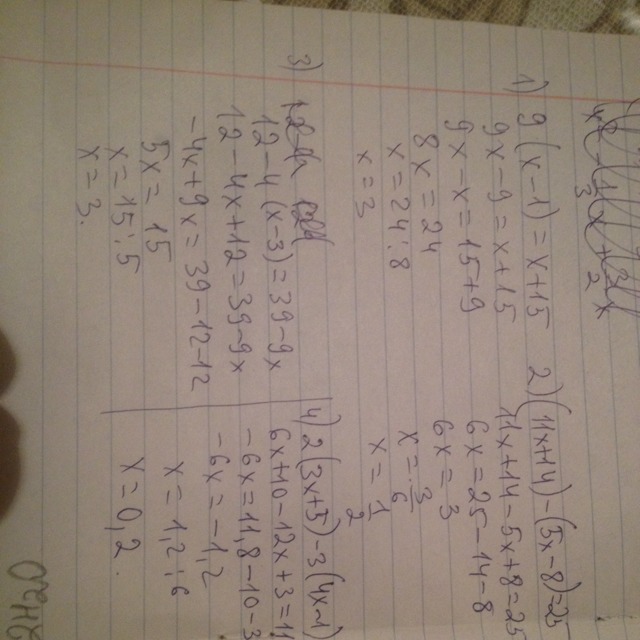 1) 9(x-1) = x+15
9x-9 = x+15
9x-x = 15+9
8x = 24
x = 24:8
x = 3
2) (11x+14)-(5x-8)=25
11x+14-5x+8=25
6x = 25-14-8
6x = 3
x = 3/6
x = 1/2
3)
12-4(x-3) = 39-9x
12-4x+12 = 39-9x
-4x+9x = 39-12-12
5x = 15
x = 15:5
x = 3.
4) 2(3x+5)-3(4x-1)
6x+10-12x+3=11
-6x = 11,8-10-3
-6x = -1,2
x = 1,2:6
x = 0,2.
2H2O